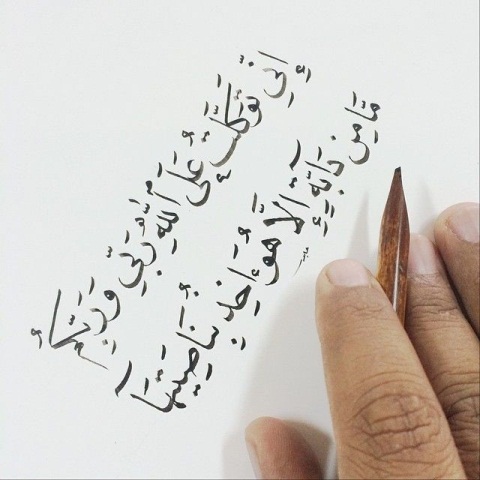 إِنِّى تَوَكَّلْتُ عَلَى ٱللَّهِ رَبِّى وَرَبِّكُمْ
مَّا مِن دَآبَّةٍ إِلَّا هُوَ ءَاخِذٌۢ بِنَاصِيَتِهَآ